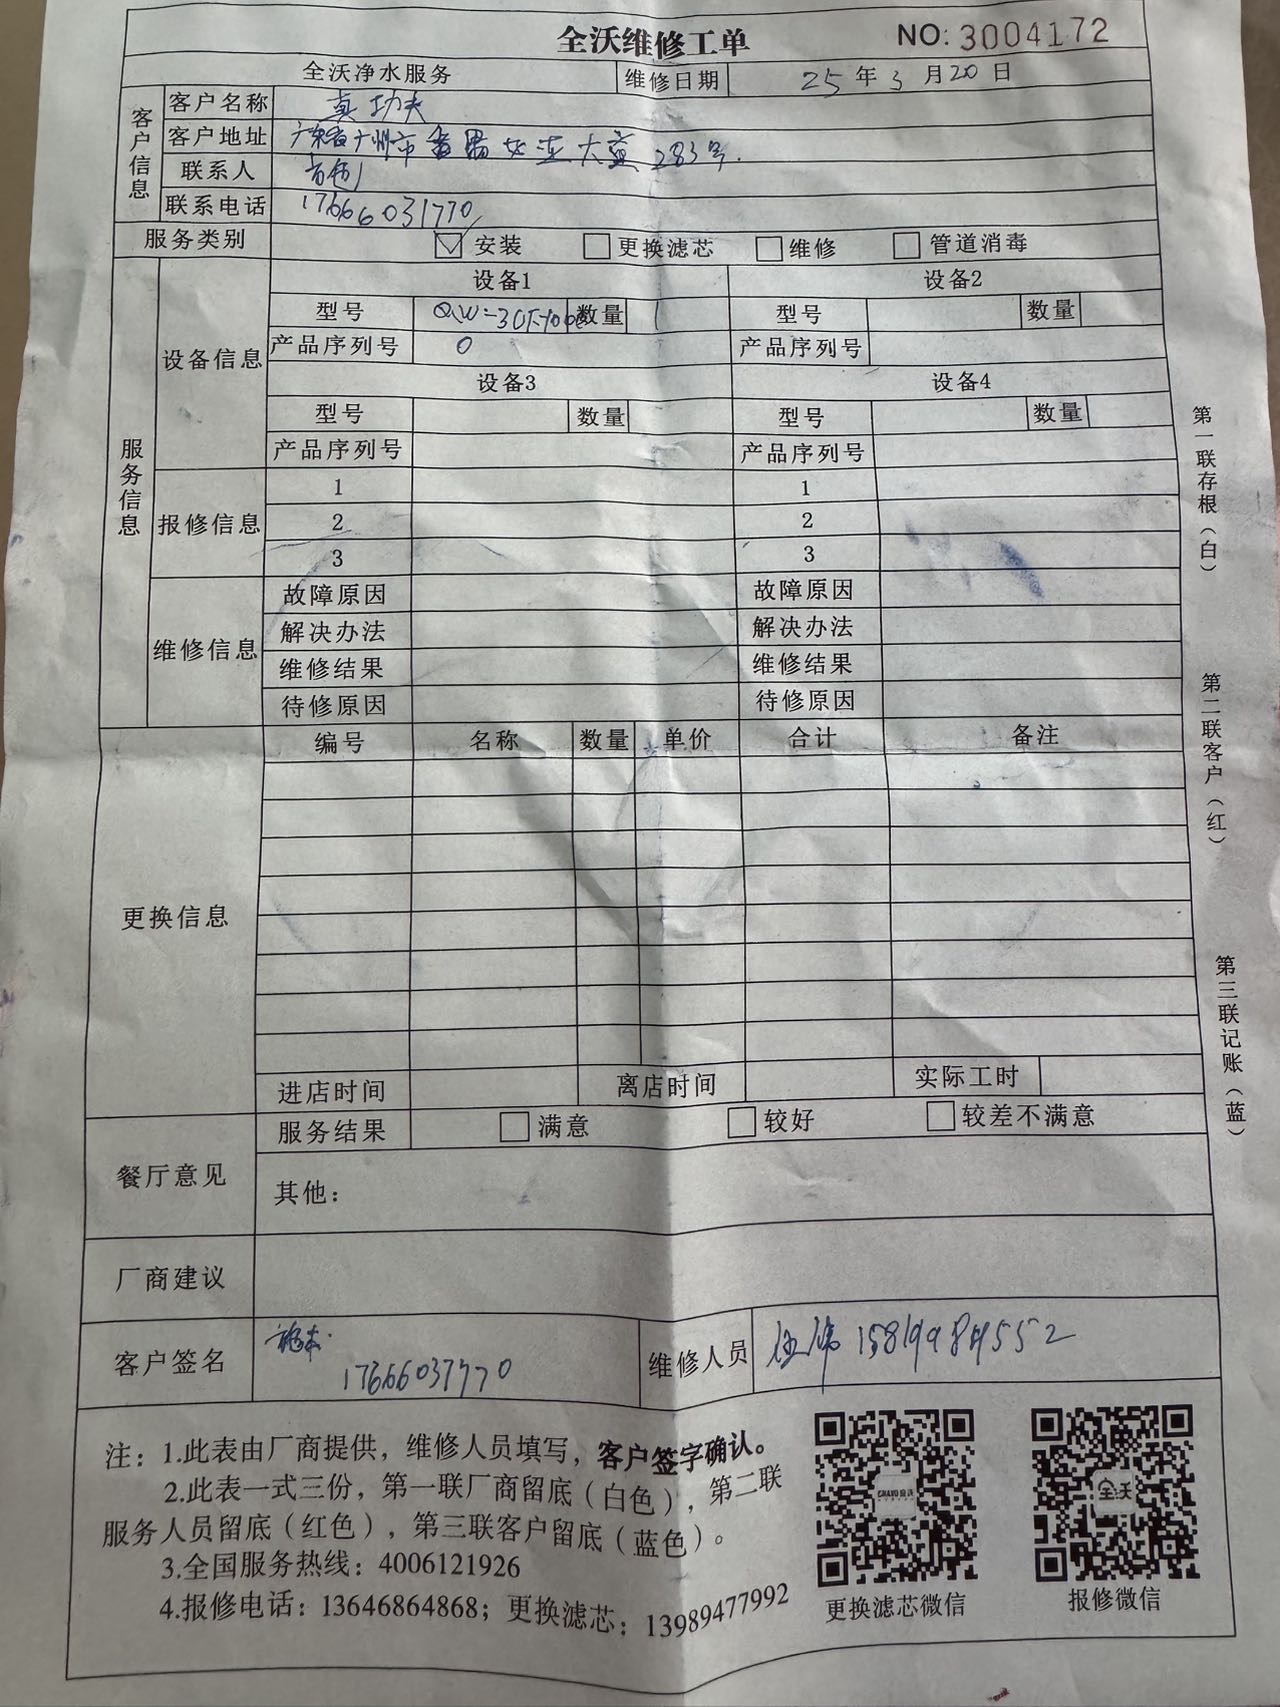 全沃维修工单 NO: 3004172
全沃净水服务 维修日期 25 年 3 月 20 日
客户信息
客户名称 真功夫
客户地址 广东省广州市番禺 大道 283号.
联系人
联系电话 17666031770
服务类别 安装 更换滤芯 维修 管道消毒
服务信息
设备信息
设备1 设备2
型号 数量 1 型号 数量
产品序列号 0 产品序列号
设备3 设备4
型号 数量 型号 数量
产品序列号 产品序列号
报修信息
1 1
2 2
3 3
维修信息
故障原因 故障原因
解决办法 解决办法
维修结果 维修结果
待修原因 待修原因
更换信息
编号 名称 数量 单价 合计 备注
进店时间 离店时间 实际工时
餐厅意见
服务结果 满意 较好 较差不满意
其他：
厂商建议
客户签名 17666037770
维修人员 伍伟 15819984552
第一联存根（白）
第二联客户（红）
第三联记账（蓝）
注：1.此表由厂商提供，维修人员填写，客户签字确认。
2.此表一式三份，第一联厂商留底（白色），第二联
服务人员留底（红色），第三联客户留底（蓝色）。
3.全国服务热线：4006121926
4.报修电话：13646864868；更换滤芯：13989477992
全沃
更换滤芯微信 报修微信